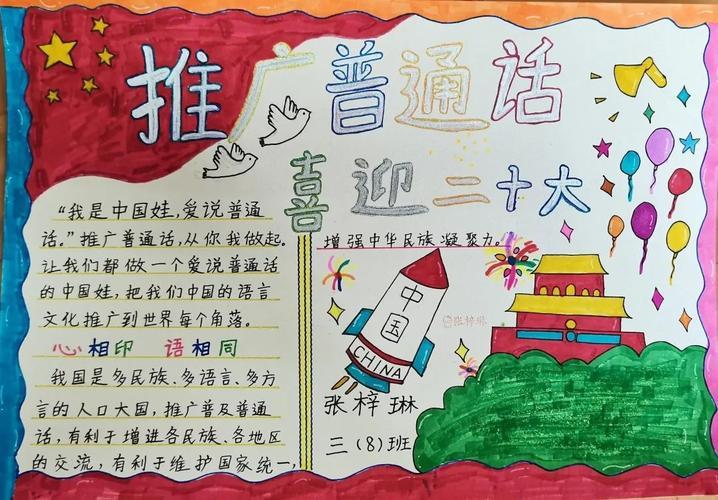 推广普通话
喜迎二十大
“我是中国娃,爱说普通
话。”推广普通话,从你我做起。
让我们都做一个爱说普通话
的中国娃,把我们中国的语言
文化推广到世界每个角落。
心相印 语相同
我国是多民族、多语言、多方
言的人口大国,推广普及普通
话,有利于增进各民族、各地区
的交流,有利于维护国家统一,
增强中华民族凝聚力。
中国
CHINA
张梓琳
张梓琳
三(8)班